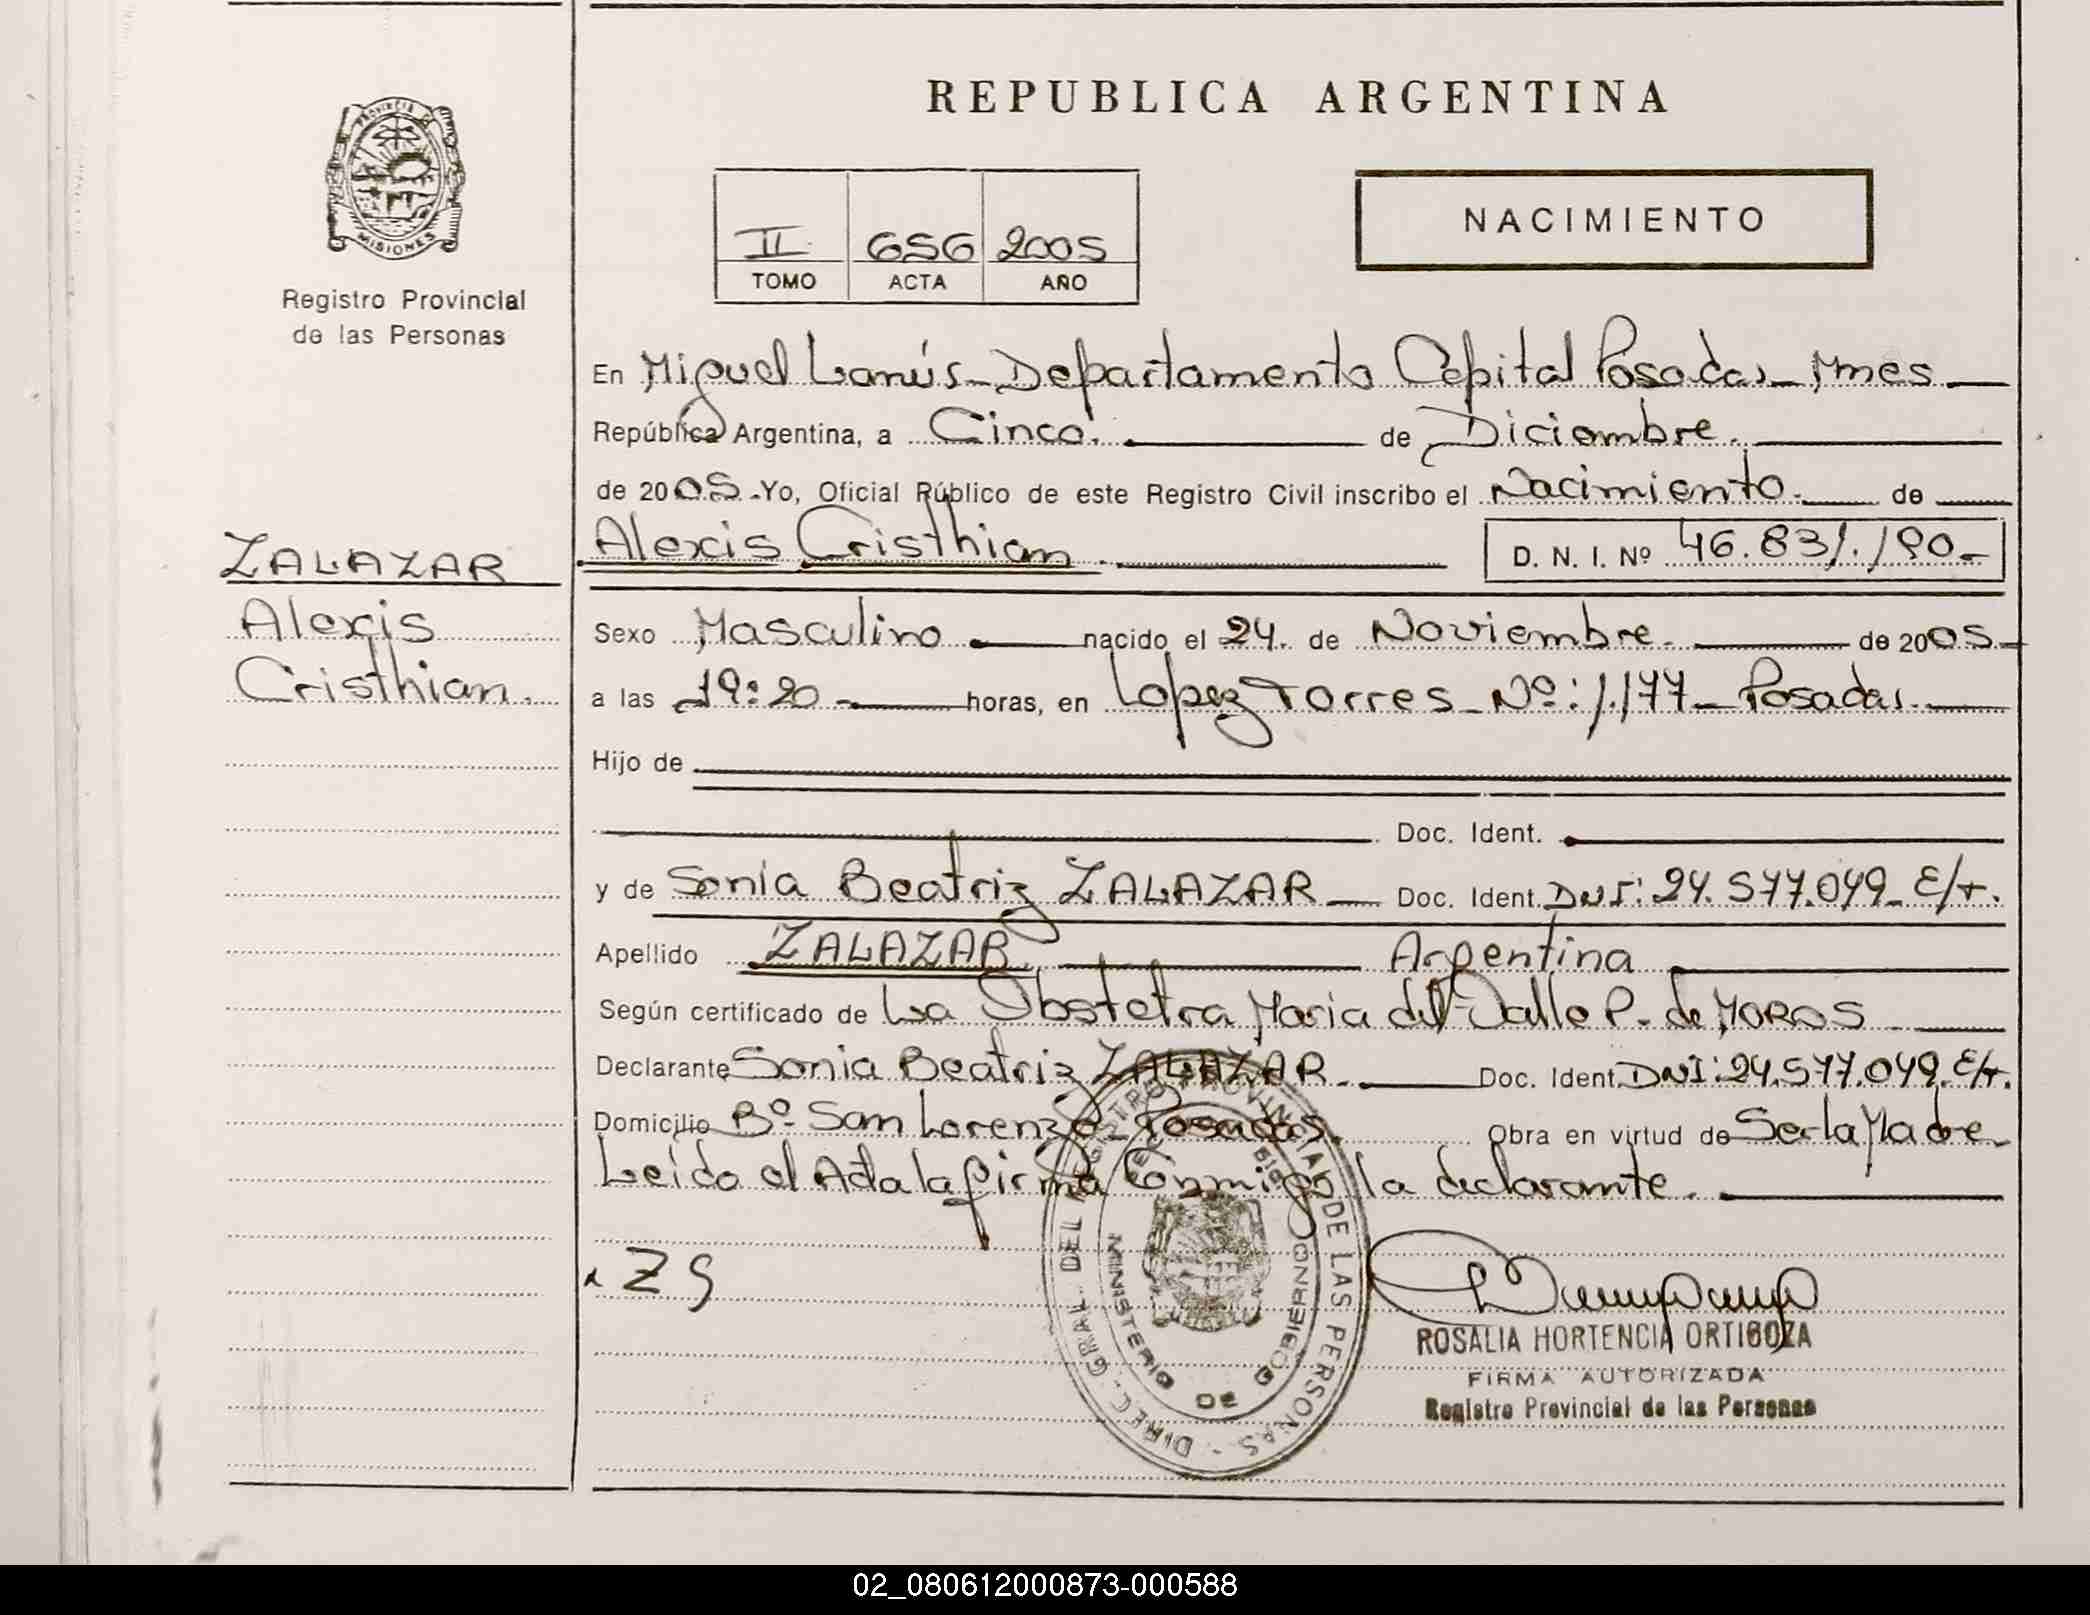 REPUBLICA ARGENTINA
PROVINCIA DE MISIONES
Registro Provincial
de las Personas
II 656 2005
TOMO ACTA AÑO
NACIMIENTO
En Miguel Lanús - Departamento Capital Posadas - Mnes
República Argentina, a Cinco. de Diciembre.
de 2005. Yo, Oficial Público de este Registro Civil inscribo el Nacimiento. de
ZALAZAR
Alexis
Cristhian.
Alexis Cristhian. D. N. I. Nº 46.831.190-
Sexo Masculino nacido el 24. de Noviembre. de 2005.
a las 19:20 horas, en Lopez Torres - Nº: 1.177 - Posadas.
Hijo de
Doc. Ident.
y de Sonia Beatriz ZALAZAR Doc. Ident. DNI: 24.577.049 - E/t.
Apellido ZALAZAR. Argentina
Según certificado de La Obstetra Maria del Valle P. de MOROS
Declarante Sonia Beatriz ZALAZAR. Doc. Ident. DNI: 24.577.049. E/t.
Domicilio Bº San Lorenzo - Posadas. Obra en virtud de Ser la Madre.
Leída el Acta la firma Conmigo la declarante.
x Z S
DIREC. GRAL. DEL REGISTRO PROVINCIAL DE LAS PERSONAS -
MINISTERIO DE GOBIERNO
ROSALIA HORTENCIA ORTIGOZA
FIRMA AUTORIZADA
Registro Provincial de las Personas
02_080612000873-000588